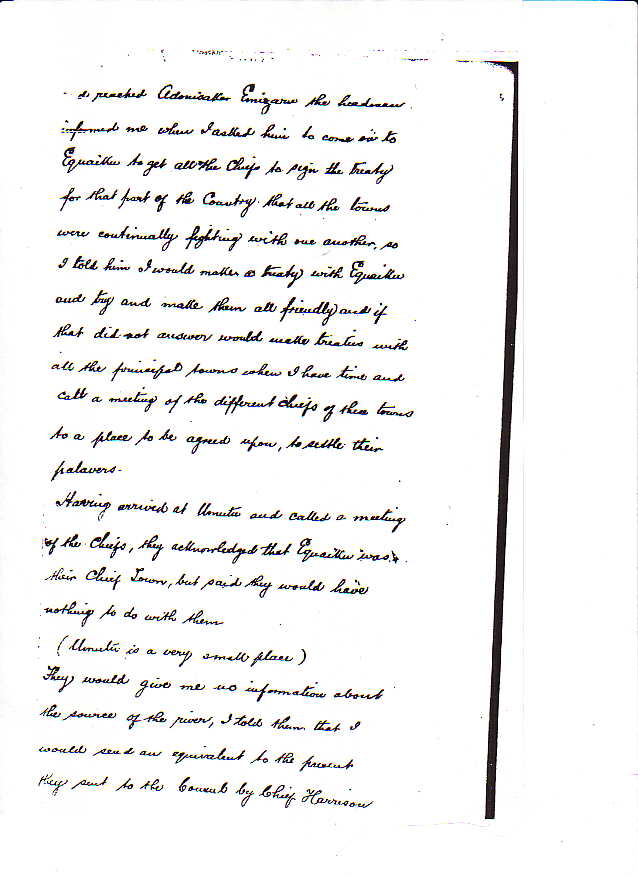 I reached Adonisaka Emigaru the headman
informed me when I asked him to come in to
Equaitu to get all the Chiefs to sign the treaty
for that part of the Country that all the towns
were continually fighting with one another, so
I told him I would make a treaty with Equaitu
and try and make them all friendly and if
that did not answer would make treaties with
all the principal towns when I have time and
call a meeting of the different Chiefs of these towns
to a place to be agreed upon, to settle their
palavers.
Having arrived at Umutu and called a meeting
of the Chiefs, they acknowledged that Equaitu was
their Chief Town, but said they would have
nothing to do with them
(Umutu is a very small place)
They would give me no information about
the source of the river, I told them that I
would send an equivalent to the present
they sent to the Consul by Chief Harrison